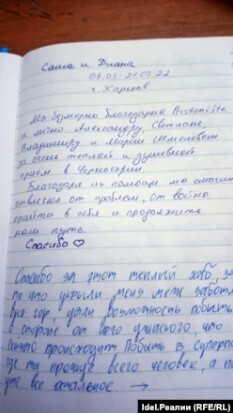 Саша и Диана
09.03-21.03.22
г. Харьков
Мы безмерно благодарны
и лично Александру, Светлане,
Владимиру и Марии
за очень теплый и душевный
прием в Черногории.
Благодаря их помощи мы смогли
отвлечься от проблем, от войны
прийти в себя и продолжить
наш путь.
Спасибо ♡
Спасибо за этот теплый
то что укрыли меня меж заботл
вых гор, дали возможность побыть
в стороне от всего ужасного, что
сейчас происходит. Побыть в
где ты прежде всего человек, а по
уже все остальное →
Idel.Реалии (RFE/RL)